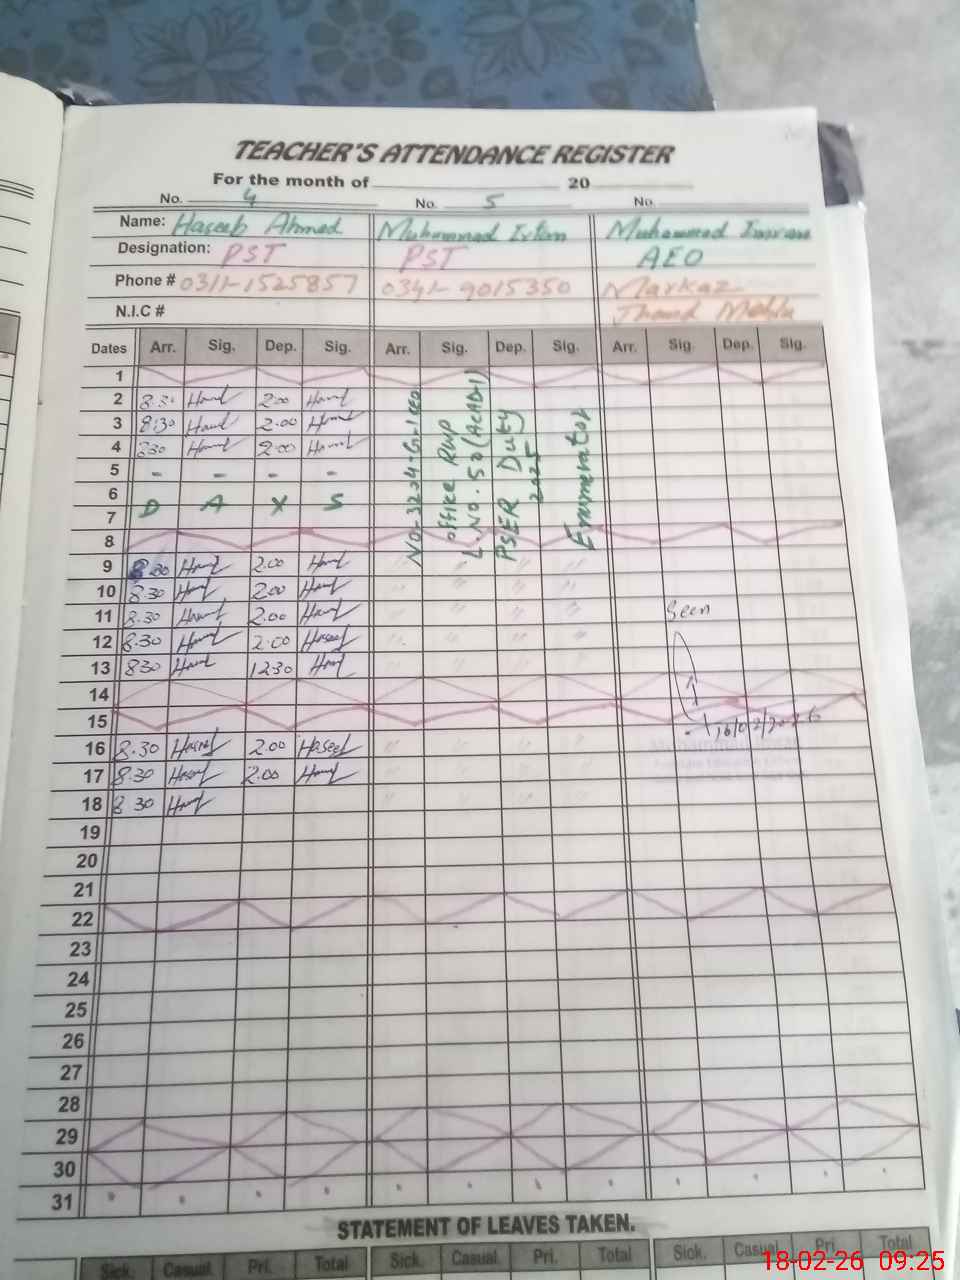 TEACHER'S ATTENDANCE REGISTER
For the month of 20
No. 4 No. 5 No.
Name: Haseeb Ahmed Muhammad Irfan Muhammad Imran
Designation: PST PST AEO
Phone # 0311-1525857 0341-9015350 Markaz
N.I.C # Jhand Mehlu
Dates Arr. Sig. Dep. Sig. Arr. Sig. Dep. Sig. Arr. Sig. Dep. Sig.
1
2 8:30 2.00
3 8:30 2.00
4 830 2.00
5 - - - -
6 D A X S
7
8
9 8.30 2.00 " " " "
10 8.30 2.00 " " " "
11 8.30 2.00 " " " " Seen
12 8.30 2.00 Haseeb " " " "
13 830 1230 " " " "
14
15
16/02/2026
16 8.30 Haseeb 2.00 Haseeb " " " "
17 8.30 Haseeb 2.00 " " " "
18 8 30 " " " "
19
20
21
22
23
24
25
26
27
28
29
30
31
office Rwp
L.No. 50 (ACAD-I)
PSER Duty
2025
Enumerator
STATEMENT OF LEAVES TAKEN.
Sick. Casual. Pri. Total Sick. Casual. Pri. Total Sick. Casual Pri. Total
18-02-26 09:25